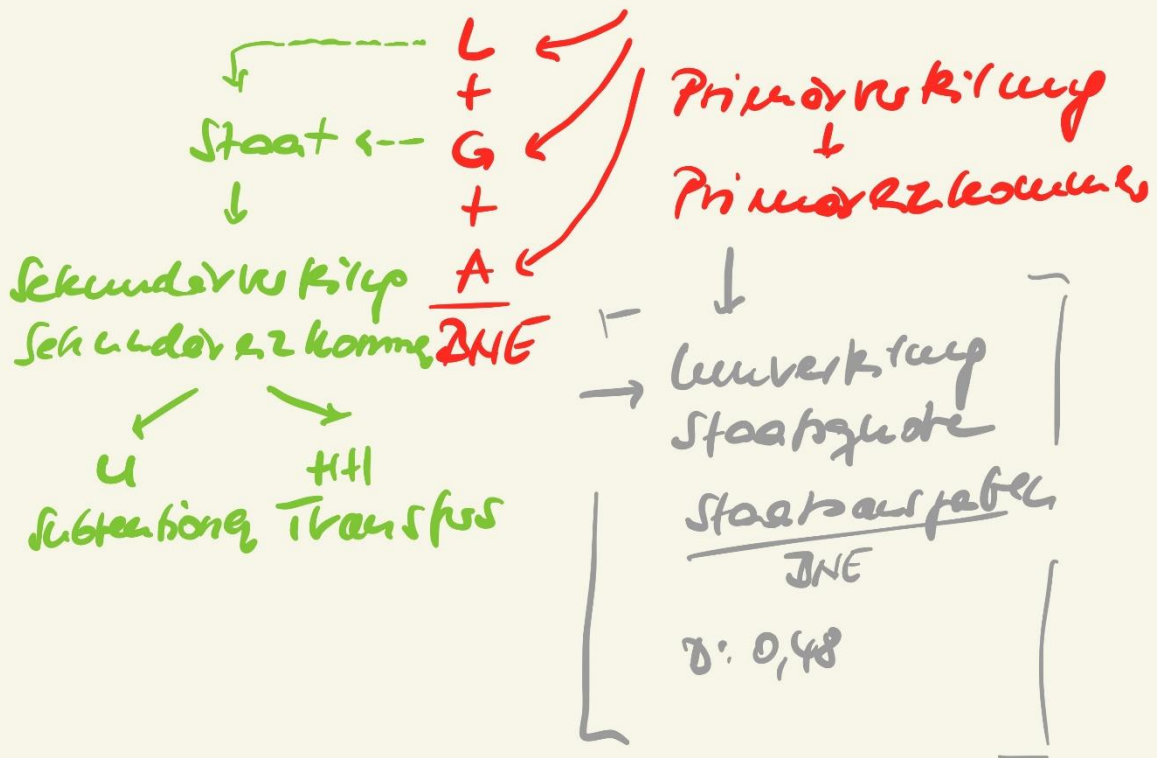 L
+
G
+
A
BNE
Primärverteilung
Primäreinkommen
Staat
Sekundärverteilung
Sekundäreinkommen
U
HH
Subventionen
Transfers
Umverteilung
Staatsquote
Staatsausgaben
BNE
D: 0,48